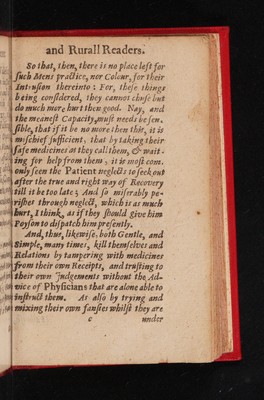 and Rurall Readers.
So that, then, there is no place left for
such Mens practice, nor Colour, for their
Intrusion thereinto: For, these things
being considered, they cannot chuse but
do much more hurt then good. Nay, and
the meanest Capacity, must needs be sen-
sible, that if it be no more then this, it is
mischief sufficient, that by taking their
safe medicines as they call them, & wait-
ing for help from them, it is most com-
only seen the Patient neglects to seek out
after the true and right way of Recovery
till it be too late; And so miserably pe-
risher through neglect, which is as much
hurt, I think, as if they should give him
Poyson to dispatch him presently.
And, thus, likewise, both Gentle, and
Simple, many times, kill themselves and
Relations by tampering with medicines
from their own Receipts, and trusting to
their own Judgements without the Ad-
vice of Physicians that are alone able to
instruct them. As also by trying and
mixing their own fansies whilst they are
c under